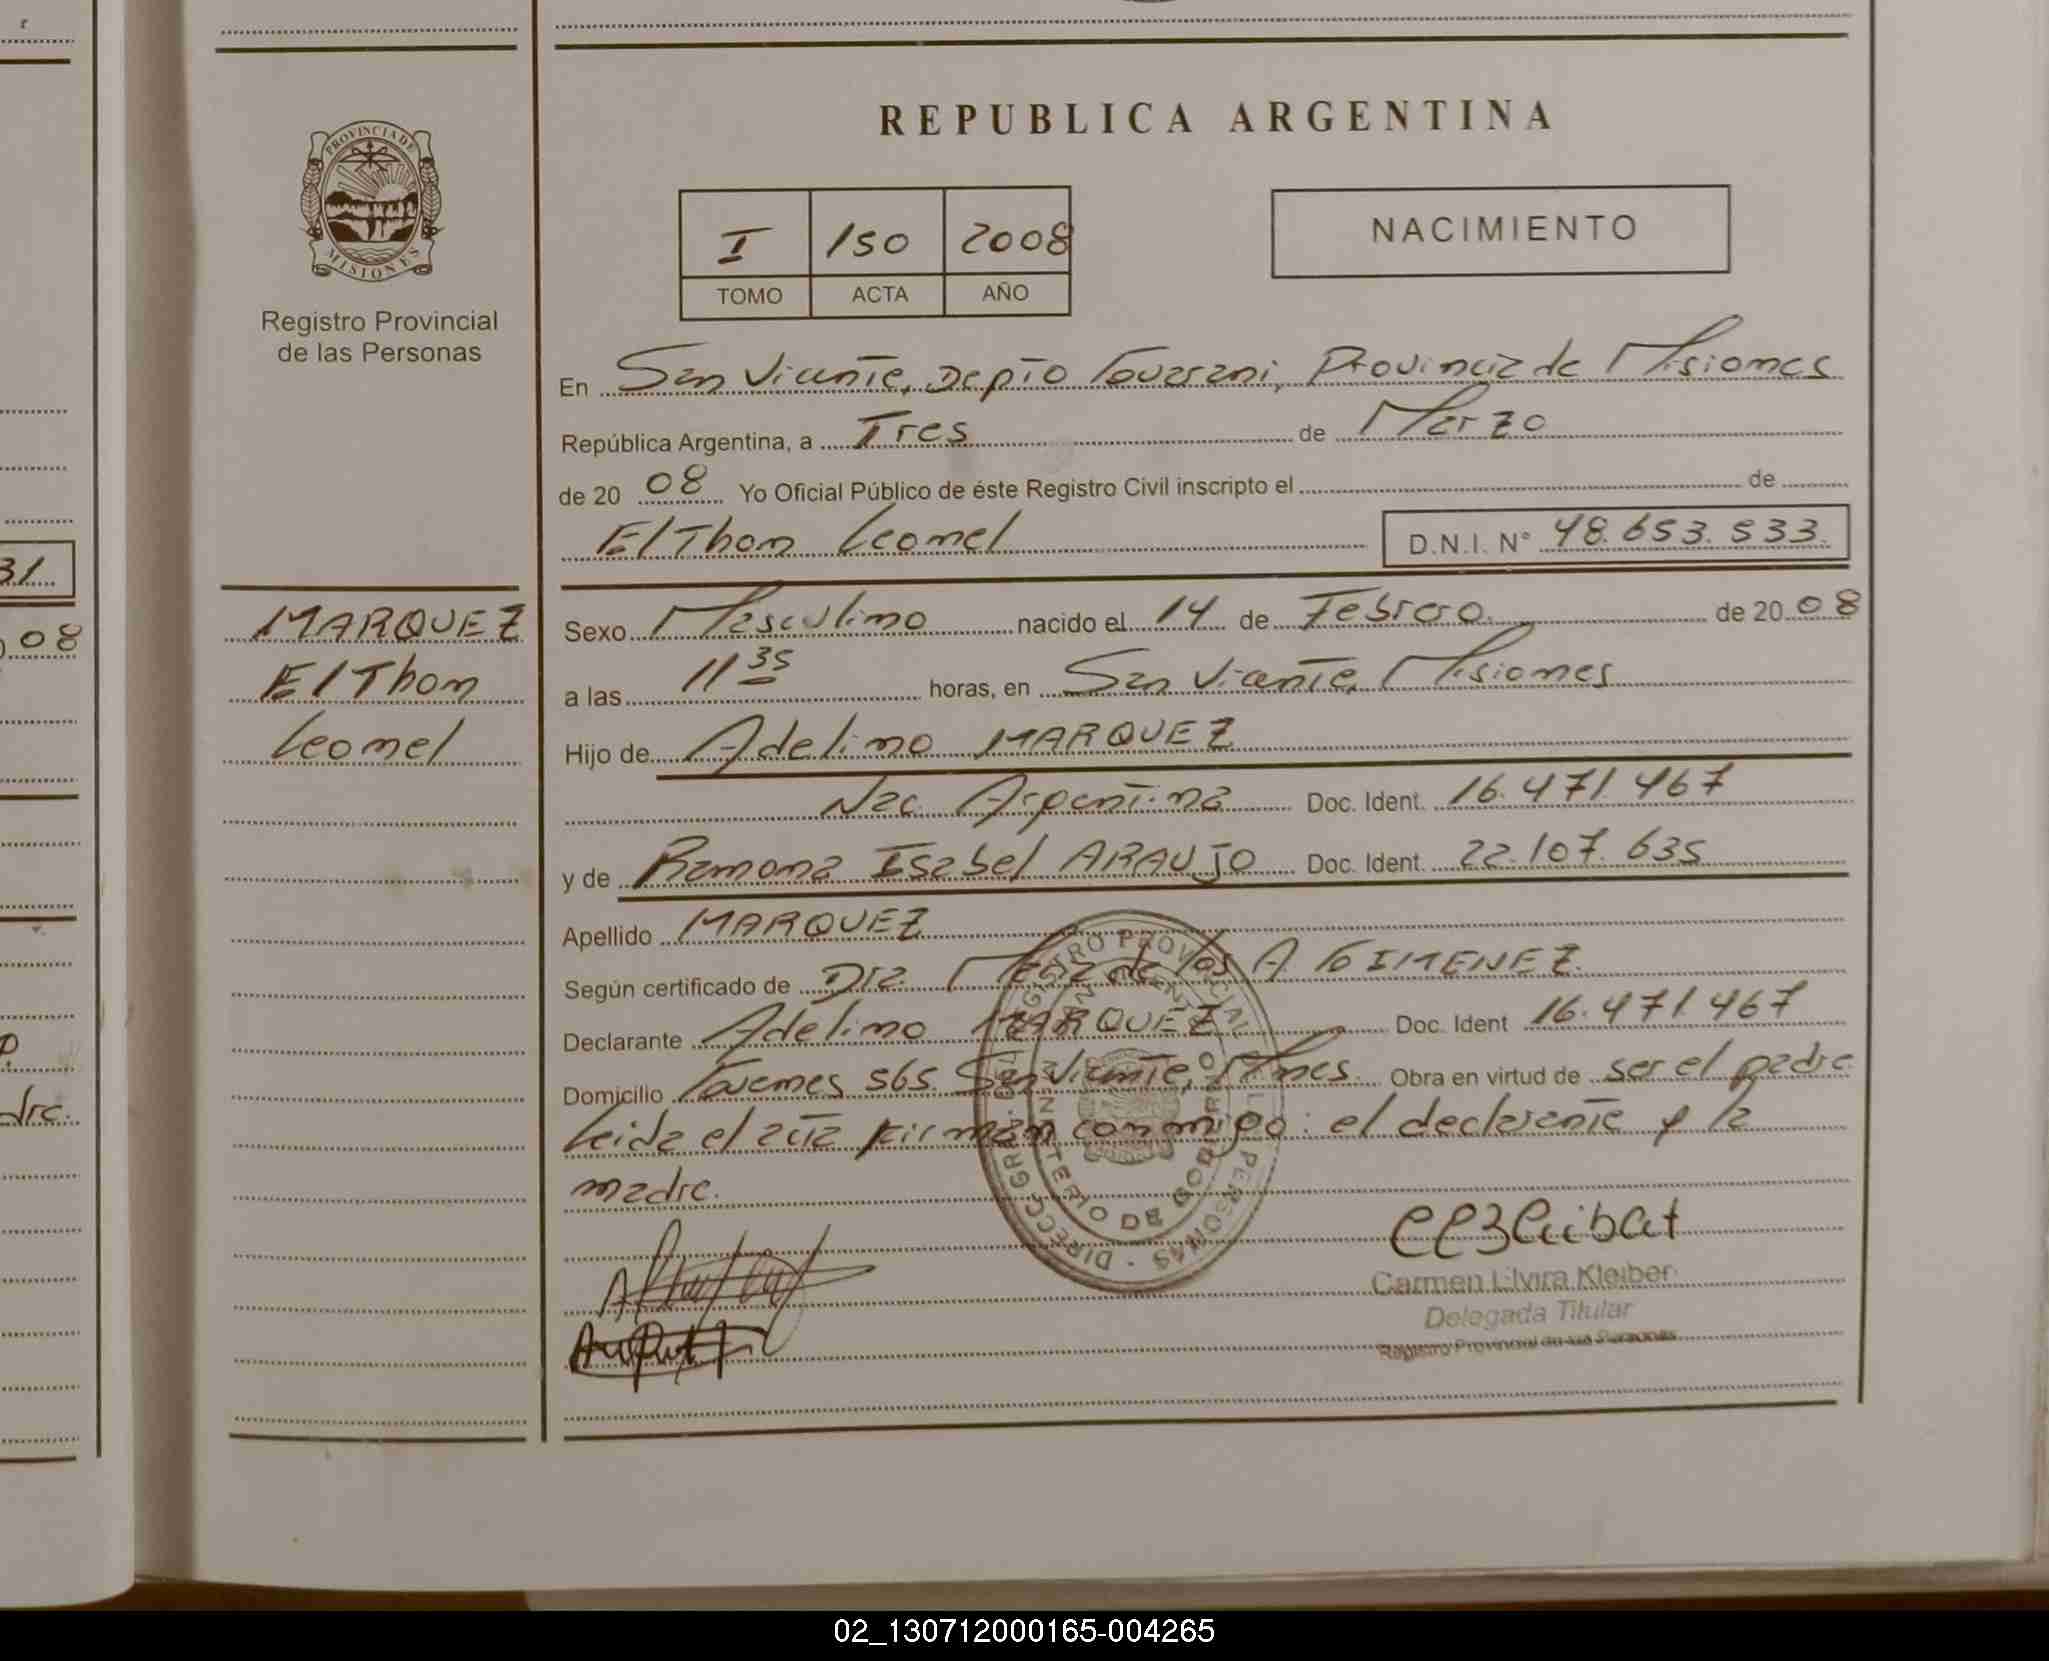 REPUBLICA ARGENTINA
PROVINCIA DE MISIONES
Registro Provincial
de las Personas
I 150 2008
TOMO ACTA AÑO
NACIMIENTO
En San Vicente, Depto Guarani, Provincia de Misiones
República Argentina, a Tres de Marzo
de 20 08 Yo Oficial Público de éste Registro Civil inscripto el de
Elthon Leonel D.N.I. N° 48.653.533.
MARQUEZ
Elthon
Leonel
Sexo Masculino nacido el 14 de Febrero de 20 08
a las 11 35 horas, en San Vicente, Misiones
Hijo de Adelino MARQUEZ
Nac. Argentina Doc. Ident. 16.471.467
y de Ramona Isabel ARAUJO Doc. Ident. 22.107.635
Apellido MARQUEZ
Según certificado de Dra. Maria de los A GIMENEZ.
Declarante Adelino MARQUEZ Doc. Ident 16.471.467
Domicilio Guemes 565. San Vicente, Mnes. Obra en virtud de ser el padre.
Leida el acta firman conmigo: el declarante y la
madre.
Carmen Elvira Kleiber
Delegada Titular
Registro Provincial de las Personas
31
08
dre.
02_130712000165-004265